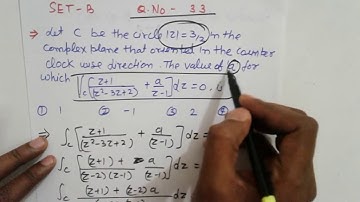 SET-B Q.No- 33
⇒ Let C be the circle |z| = 3/2 in the
complex plane that oriented in the counter
clock wise direction. The value of a for
which ∫c [z+1/(z²-3z+2) + a/(z-1)] dz = 0.
① 1 ② -1 ③ 2
⇒ ∫c [z+1/(z²-3z+2) + a/(z-1)] dz =
⇒ ∫c [(z+1)/(z-2)(z-1) + a/(z-1)]
∫c (z+1) + (z-2)a dz =